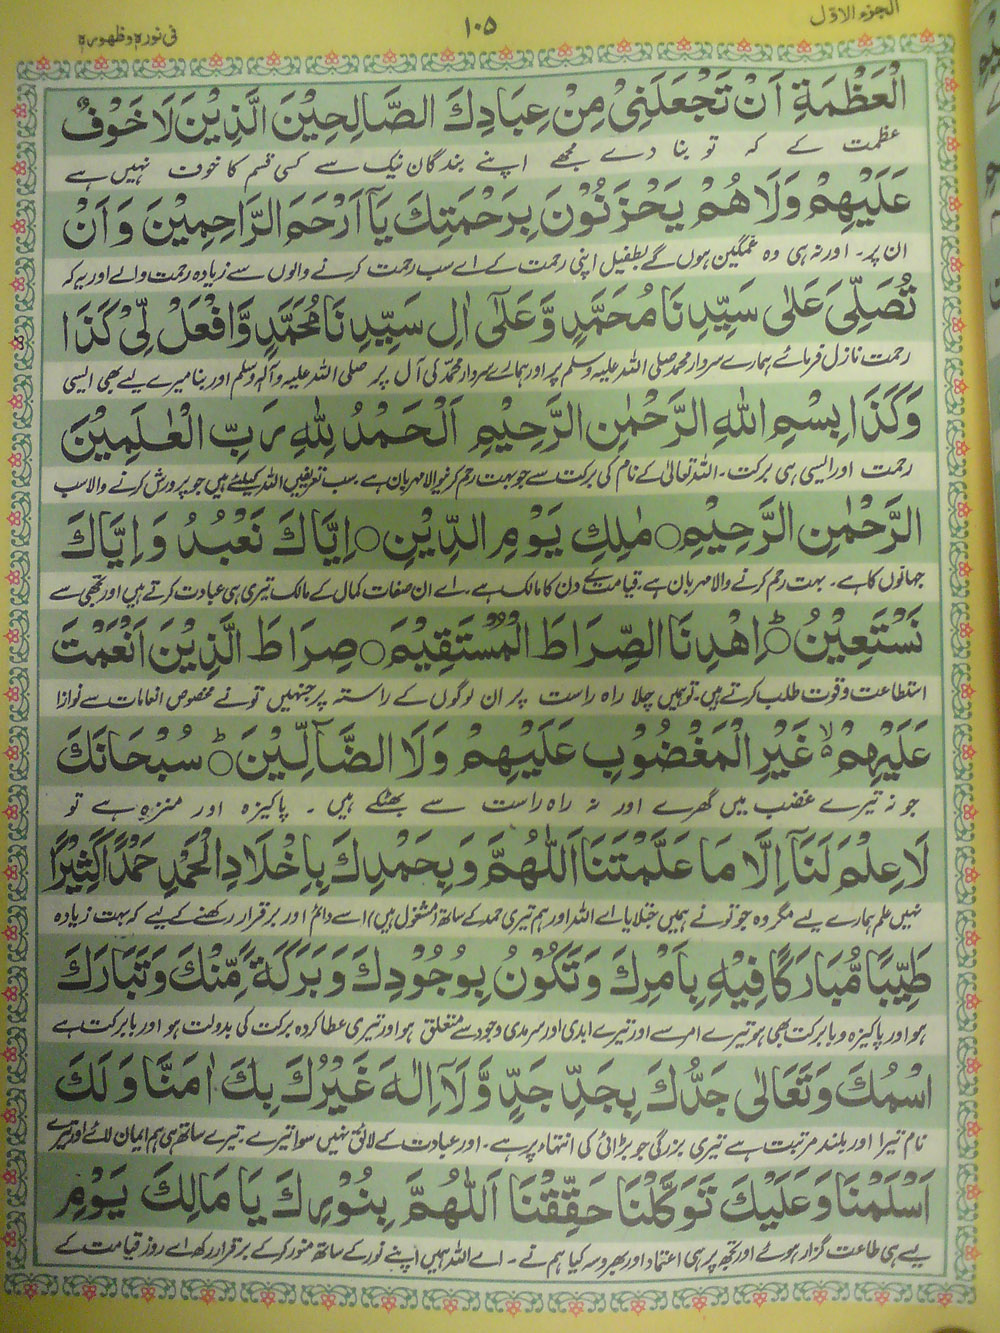 الجزء الاوّل
١٠٥
فی نورہ وظھورہ
الْعَظْمَةِ اَنْ تَجْعَلَنِیْ مِنْ عِبَادِكَ الصَّالِحِیْنَ الَّذِیْنَ لَاخَوْفٌ
عظمت کے کہ تو بنا دے مجھے اپنے بندگان نیک سے کسی قسم کا خوف نہیں ہے
عَلَیْهِمْ وَلَا هُمْ یَحْزَنُوْنَ بِرَحْمَتِكَ یَآ اَرْحَمَ الرَّاحِمِیْنَ وَ اَنْ
ان پر۔ اور نہ ہی وہ غمگین ہوں گے بطفیل اپنی رحمت کے اے سب رحمت کرنے والوں سے زیادہ رحمت والے اور یہ کہ
تُصَلِّیَ عَلٰی سَیِّدِنَا مُحَمَّدٍ وَّعَلٰٓی اٰلِ سَیِّدِنَا مُحَمَّدٍ وَّافْعَلْ لِّیْ كَذَا
رحمت نازل فرمائے ہمارے سردار محمد صلی اللہ علیہ وسلم پر اور ہمارے سردار محمد کی آل پر صلی اللہ علیہ وآلہ وسلم اور بنا میرے لیے بھی ایسی
وَكَذَا بِسْمِ اللهِ الرَّحْمٰنِ الرَّحِیْمِ اَلْحَمْدُ لِلّٰهِ رَبِّ الْعٰلَمِیْنَ
رحمت اور ایسی ہی برکت۔ اللہ تعالیٰ کے نام کی برکت سے جو بہت رحم کرنیوالا مہربان ہے سب تعریفیں اللہ کیلئے ہیں جو پرورش کرنے والا سب
الرَّحْمٰنِ الرَّحِیْمِ○ مٰلِكِ یَوْمِ الدِّیْنِ○ اِیَّاكَ نَعْبُدُ وَ اِیَّاكَ
جہانوں کا ہے۔ بہت رحم کرنے والا مہربان ہے۔ قیامت کے دن کا مالک ہے۔ اے ان صفات کمال کے مالک تیری ہی عبادت کرتے ہیں اور تجھی سے
نَسْتَعِیْنُ○ؕ اِهْدِنَا الصِّرَاطَ الْمُسْتَقِیْمَ○ صِرَاطَ الَّذِیْنَ اَنْعَمْتَ
استطاعت وقوت طلب کرتے ہیں۔ تو ہمیں چلا راہ راست پر ان لوگوں کے راستہ پر جنہیں تو نے مخصوص انعامات سے نوازا
عَلَیْهِمْ ۙ غَیْرِ الْمَغْضُوْبِ عَلَیْهِمْ وَلَا الضَّآلِّیْنَ○ؕ سُبْحَانَكَ
جو نہ تیرے غضب میں گھرے اور نہ راہ راست سے بھٹکے ہیں۔ پاکیزہ اور منزہ ہے تو
لَا عِلْمَ لَنَآ اِلَّا مَا عَلَّمْتَنَا اَللّٰهُمَّ وَبِحَمْدِكَ بِاِخْلَادِ الْحَمْدِ حَمْدًا كَثِیْرًا
نہیں علم ہمارے لیے مگر وہ جو تو نے ہمیں جتلایا اے اللہ اور ہم تیری حمد کے ساتھ (مشغول ہیں) اسے دائم اور برقرار رکھنے کے لیے کہ بہت زیادہ
طَیِّبًا مُّبَارَكًا فِیْهِ بِاَمْرِكَ وَتَكُوْنُ بِوُجُوْدِكَ وَبَرَكَةً مِّنْكَ وَتَبَارَكَ
ہو اور پاکیزہ و بابرکت بھی ہو تیرے امر سے اور تیرے ابدی اور سرمدی وجود سے متعلق ہو اور تیری عطا کردہ برکت کی بدولت ہو اور بابرکت ہے
اسْمُكَ وَتَعَالٰی جَدُّكَ بِجَدِّ جَدٍّ وَّلَآ اِلٰهَ غَیْرُكَ بِكَ اٰمَنَّا وَلَكَ
نام تیرا اور بلند مرتبت ہے تیری بزرگی جو بڑائی کی انتہاء پر ہے۔ اور عبادت کے لائق نہیں سوا تیرے۔ تیرے ساتھ ہی ہم ایمان لائے اور تیرے
اَسْلَمْنَا وَعَلَیْكَ تَوَكَّلْنَا حَقِّقْنَا اَللّٰهُمَّ بِنُوْرِكَ یَا مَالِكَ یَوْمِ
لیے ہی طاعت گزار ہوئے اور تجھ پر ہی اعتماد اور بھروسہ کیا ہم نے۔ اے اللہ ہمیں اپنے نور کے ساتھ منور کر کے برقرار رکھ اے روز قیامت کے